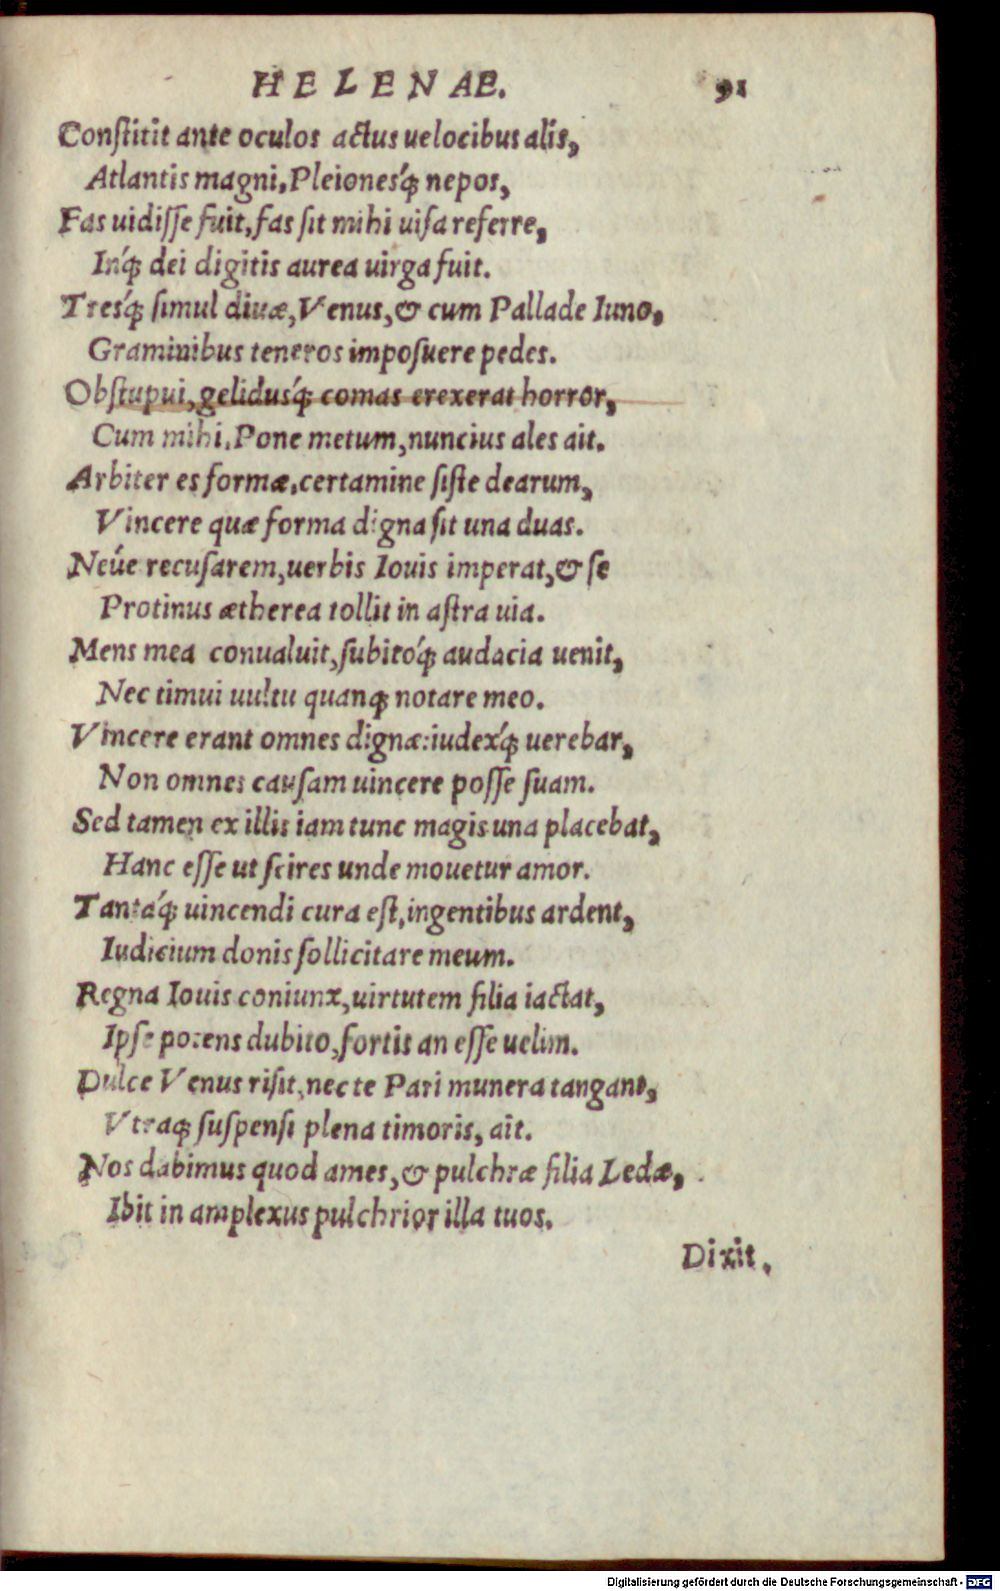 HELENAE. 91
Conſtitit ante oculos actus uelocibus alis,
Atlantis magni, Pleionesq́; nepos,
Fas uidiſſe fuit, fas ſit mihi uiſa referre,
Inq́; dei digitis aurea uirga fuit.
Tresq́; ſimul diuæ, Venus, & cum Pallade Iuno,
Graminibus teneros impoſuere pedes.
Obſtupui, gelidusq́; comas erexerat horror,
Cum mihi, Pone metum, nuncius ales ait.
Arbiter es formæ, certamine ſiſte dearum,
Vincere quæ forma digna ſit una duas.
Neúe recuſarem, uerbis Iouis imperat, & ſe
Protinus ætherea tollit in aſtra uia.
Mens mea conualuit, ſubitoq́; audacia uenit,
Nec timui uultu quanq; notare meo.
Vincere erant omnes dignæ: iudexq́; uerebar,
Non omnes cauſam uincere poſſe ſuam.
Sed tamen ex illis iam tunc magis una placebat,
Hanc eſſe ut ſcires unde mouetur amor.
Tantaq́; uincendi cura eſt, ingentibus ardent,
Iudicium donis ſollicitare meum.
Regna Iouis coniunx, uirtutem filia iactat,
Ipſe potens dubito, fortis an eſſe uelim.
Dulce Venus riſit, nec te Pari munera tangant,
Vtraq; ſuſpenſi plena timoris, ait.
Nos dabimus quod ames, & pulchræ filia Ledæ,
Ibit in amplexus pulchrior illa tuos.
Dixit,
Digitalisierung gefördert durch die Deutsche Forschungsgemeinschaft - DFG